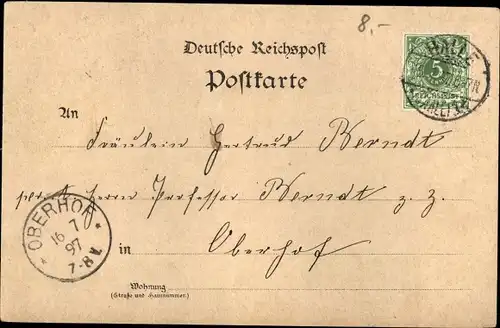 8.-
Deutsche Reichspost
Postkarte
HALLE
5
REICHSPOST
An
Fräulein Gertrud Berndt
Herrn Professor Berndt z. Z.
in Oberhof
OBERHOF
16 7
97
7-8V.
Wohnung
(Straße und Hausnummer)